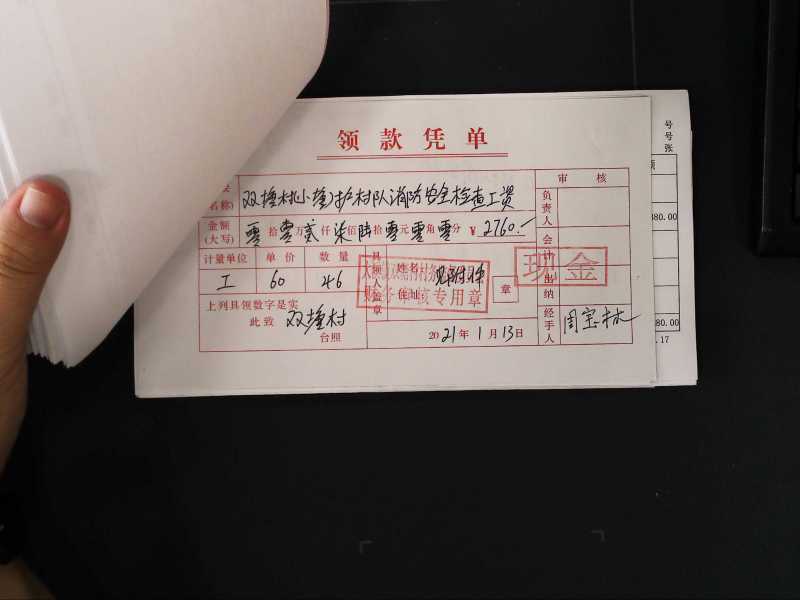 领款凭单
名称)
双塘村(小塘)护村队消防安全检查工资
审核
负责人
金额
(大写)
零拾零万贰仟柒佰陆拾零元零角零分 ¥2760.-
会计
计量单位 单价 数量
具领人盖章
姓名 见附件
住址
章
现金
工 60 46
核专用章
出纳
上列具领数字是实
此致 双塘村
台照
2021年1月13日
经手人 周宝林
号
号
张
380.00
80.00
.17